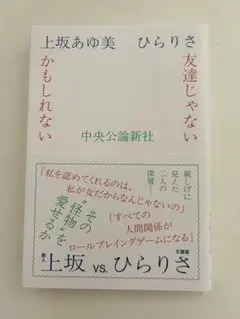 上坂あゆ美 ひらりさ
友達じゃない
かもしれない
中央公論新社
親しげに
見えた
二人の
深層――
「私を認めてくれるのは、
私が女だからなんじゃないの」
「すべての
人間関係が
ロールプレイングゲームになる」
その
“怪物”を
愛せるか
歌人 上坂 vs. ひらりさ 文筆家